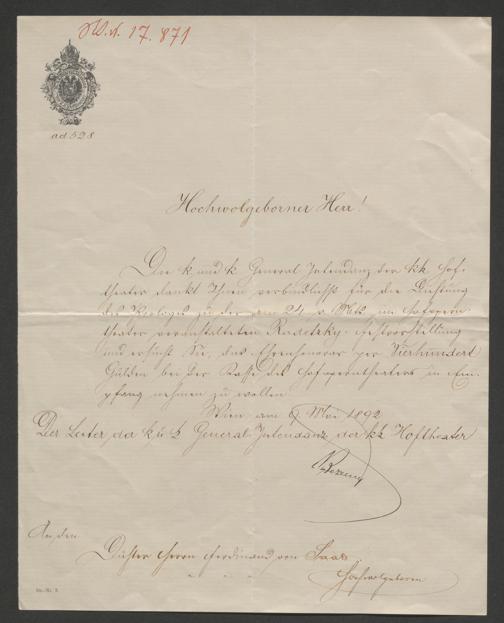 17.871
ad. 528
Hochwolgeborner Herr!
Die k. und k. General Intendanz der kk. Hof-
theater dankt Ihnen verbindlichst für die Dichtung
des Prologes zu der am 24. v. Mts. im Hofopern-
theater veranstalteten Radetzky-Festvorstellung
und ersucht Sie, das Ehrenhonorar per Vierhundert
Gulden bei der Kasse des Hofoperntheaters in Em-
pfang nehmen zu wollen.
Wien, am 9. Mai 1892
Der Leiter der k. u. k. General-Intendanz der kk. Hoftheater
An den
Dichter Herrn Ferdinand von Saar
Hochwolgeboren